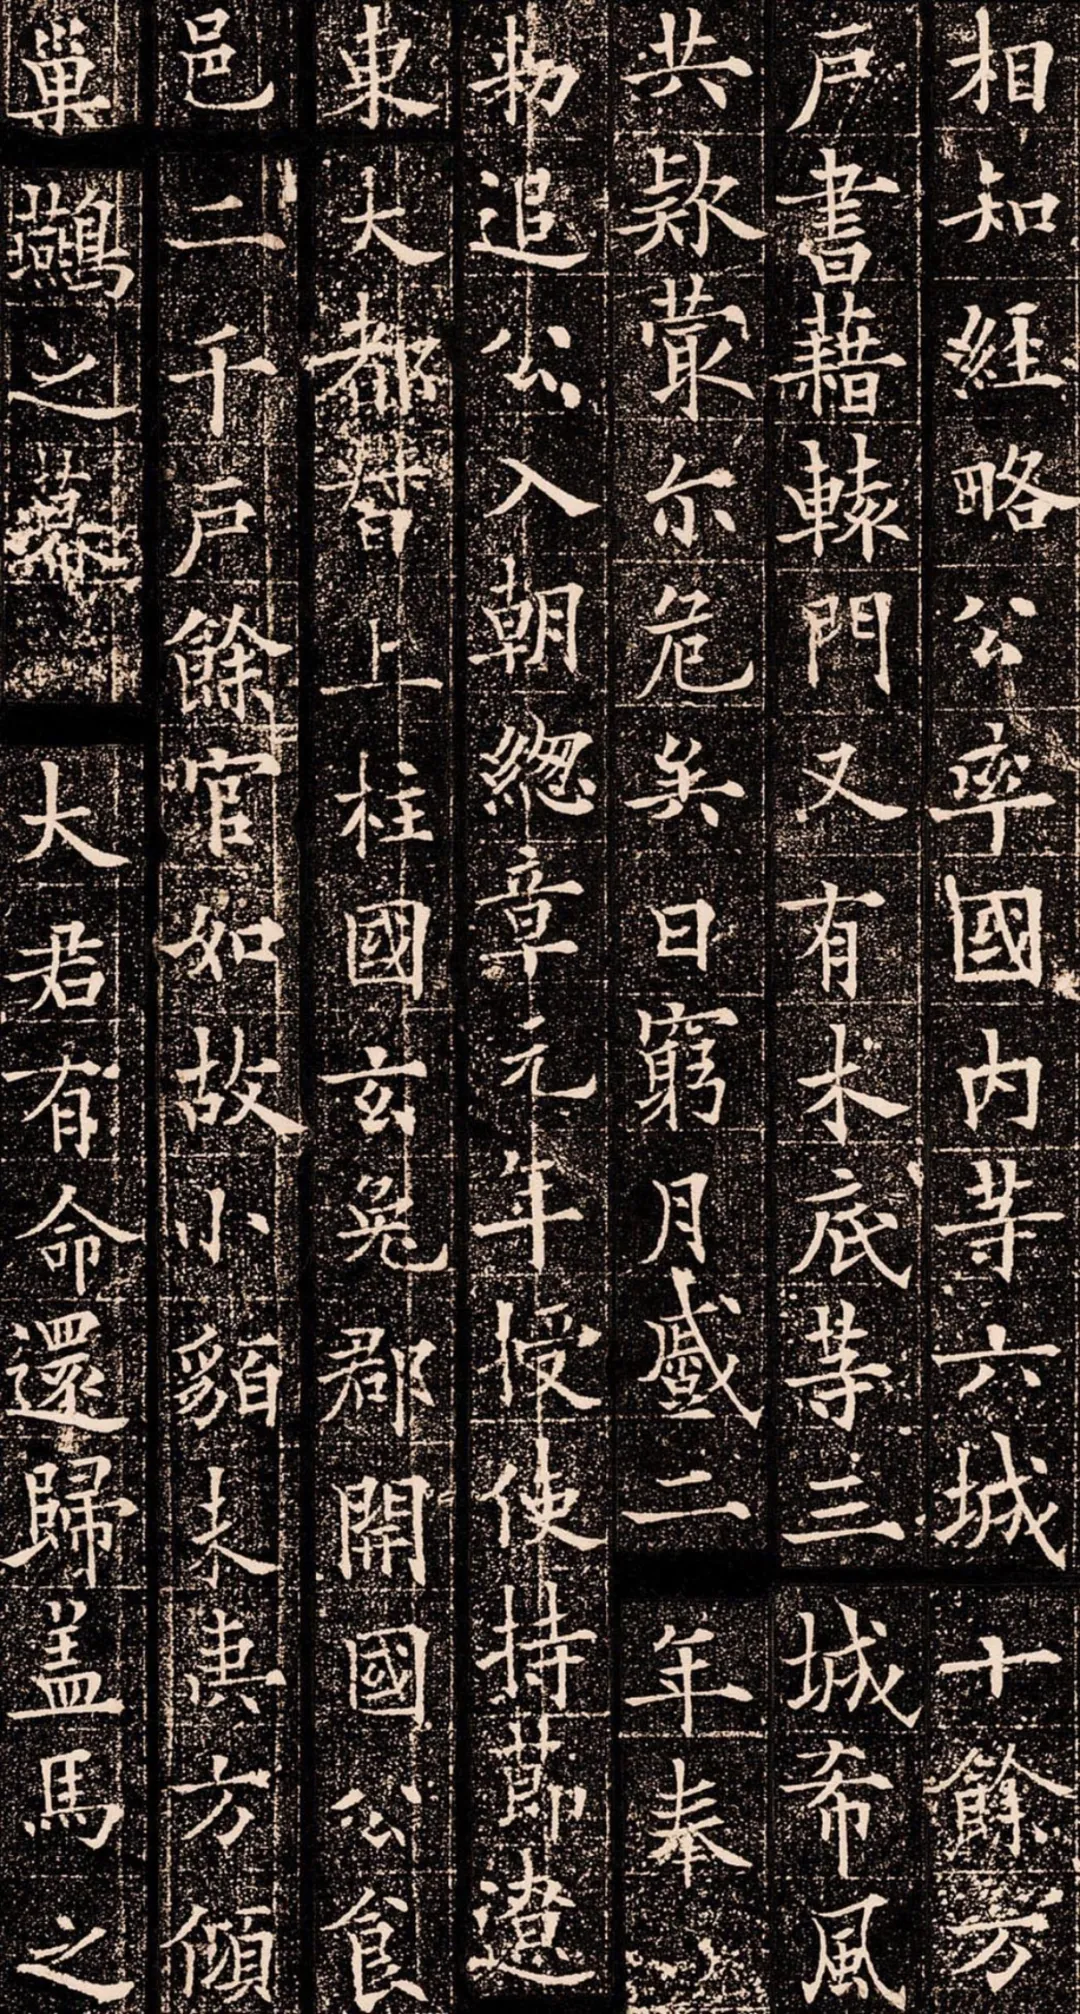 相知經略公率國内等六城十餘万
戶書藉轅門又有木底等三城希風
共款蕞尓危矣日窮月蹙二年奉
勑追公入朝緫章元年授使持莭遼
東大都督上柱國玄兔郡開國公食
邑二千戶餘官如故小貊未夷方傾
巢鷰之幕大君有命還歸盖馬之